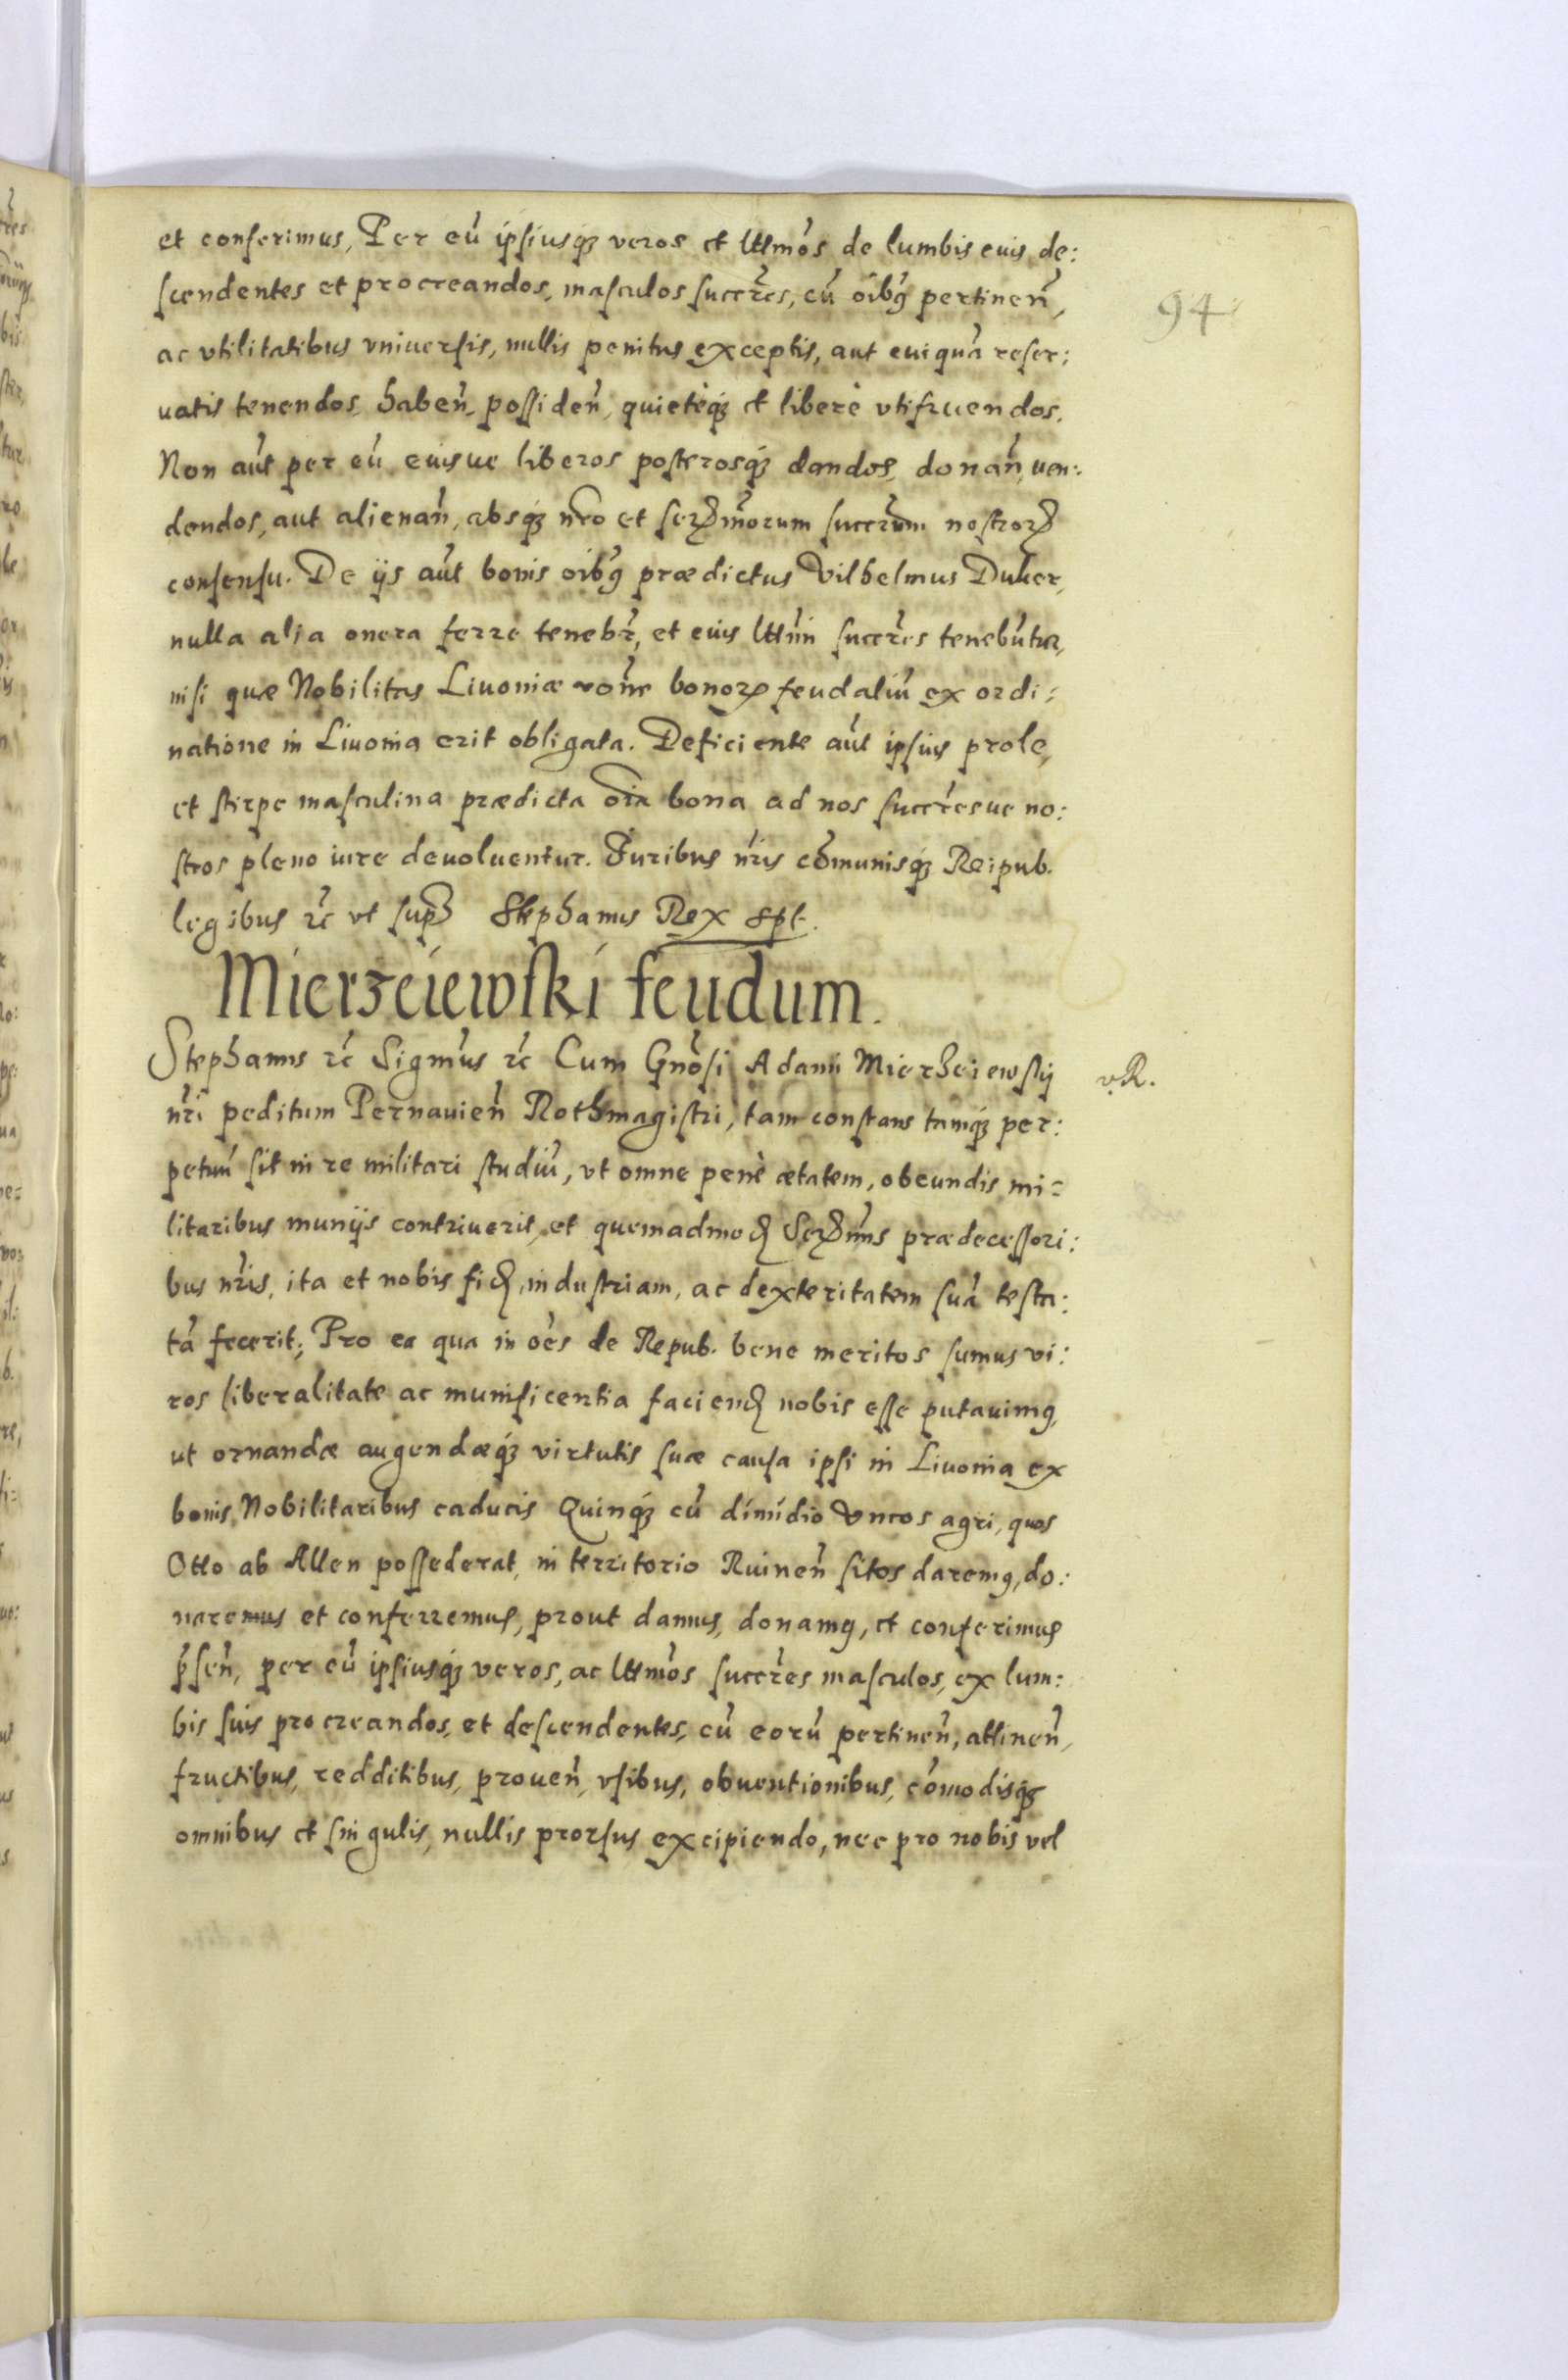 94
et conferimus, Per eū ipsiusqꝫ veros et lttimōs de lumbis euis de:
scendentes et procreandos, masculos succr̄es, cū oībꝰ pertinen̄,
ac vtilitatibus vniuersis, nullis penitus exceptis, aut cuiquā reser:
uatis tenendos, haben̄, possiden̄, quietèqꝫ et liberè vtifruendos.
Non aūt per eū euisue liberos posterosqꝫ dandos, donan̄, uen:
dendos, aut alienan̄, absqꝫ nr̄o et serꝫm̄orum succr̄um nostroꝝ
consensu. De ijs aūt bonis oībꝰ prædictus Vilhelmus Duker,
nulla alia onera ferre tenebr̄, et euis lttim̄i succr̄es tenebūtur,
nisi quæ Nobilitas Liuoniæ rōne bonoꝝ feudaliū ex ordi:
natione in Liuonia erit obligata. Deficiente aūt ipsius prole,
et stirpe masculina prædicta oīa bona ad nos succr̄esue no:
stros pleno iure deuoluentur. Iuribus nr̄is cōmunisqꝫ Reipub.
legibus rc̄ vt sup̄ Stephanus Rex sp̄t.
Mierzeiewski feudum.
Stephanus rc̄ Sigm̄us rc̄ Cum Gnōsi Adami Mierheiewsky
v.R.
nr̄i peditum Pernauien̄ Rothmagistri, tam constans tamqꝫ per:
petuū sit in re militari studiū, vt omne penè ætatem, obeundis mi=
litaribus munijs contriuerit, et quemadmoꝺ Serꝫm̄is prædecessori:
bus nr̄is, ita et nobis fiꝺ, industriam, ac dexteritatem suā testa:
tā fecerit; Pro ea qua in oēs de Repub. bene meritos sumus vi:
ros liberalitate ac munificentia facienꝺ nobis esse putauimꝰ,
ut ornandæ augendæqꝫ virtutis suæ causa ipsi in Liuonia ex
bonis Nobilitaribus caducis Quinqꝫ cū dimidio Vncos agri, quos
Otto ab Allen possederat, in territorio Ruinen̄ sitos daremꝰ, do:
naremus et conferremus, prout damus, donamꝰ, et conferimus
p̄sen̄, per eū ipsiusqꝫ veros, ac lttimōs succr̄es masculos, ex lum:
bis suis procreandos, et descendentes, cū eorū pertinen̄, attinen̄,
fructibus, redditibus, prouen̄, vsibus, obuentionibus, cōmodisqꝫ
omnibus et singulis, nullis prorsus excipiendo, nec pro nobis vel